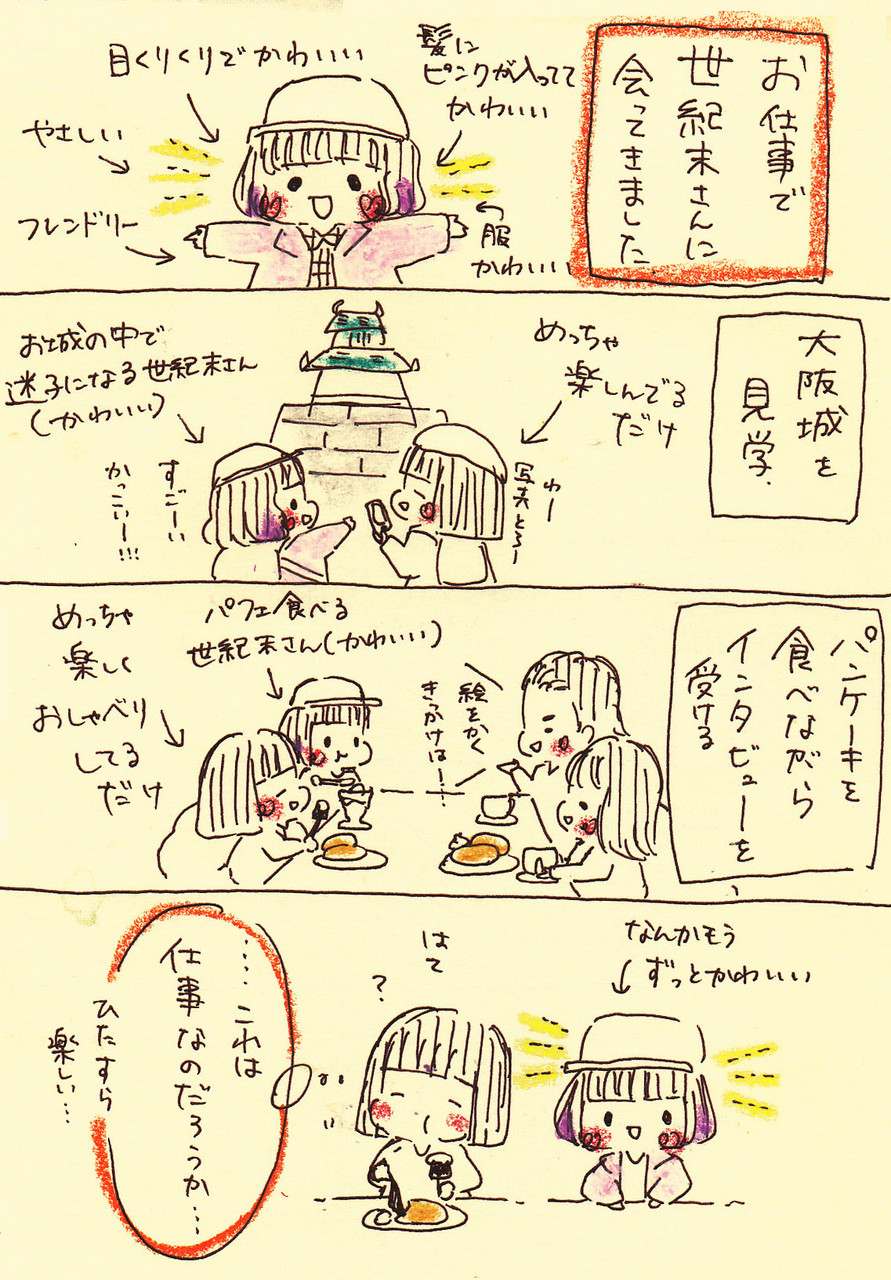 お仕事で
世紀末さんに
会ってきました
髪に
ピンクが入ってて
かわいい
目くりくりでかわいい
やさしい
フレンドリー
服
かわいい
大阪城を
見学.
めっちゃ
楽しんでる
だけ
お城の中で
迷子になる世紀末さん
(かわいい)
わー
写真とろー
すごーい
かっこいー!!!
パンケーキを
食べながら
インタビューを
受ける
絵をかく
きっかけは……
パフェ食べる
世紀末さん(かわいい)
めっちゃ
楽しく
おしゃべり
してる
だけ
なんかもう
ずっとかわいい
はて
?
……これは
仕事なのだろうか…
ひたすら
楽しい…